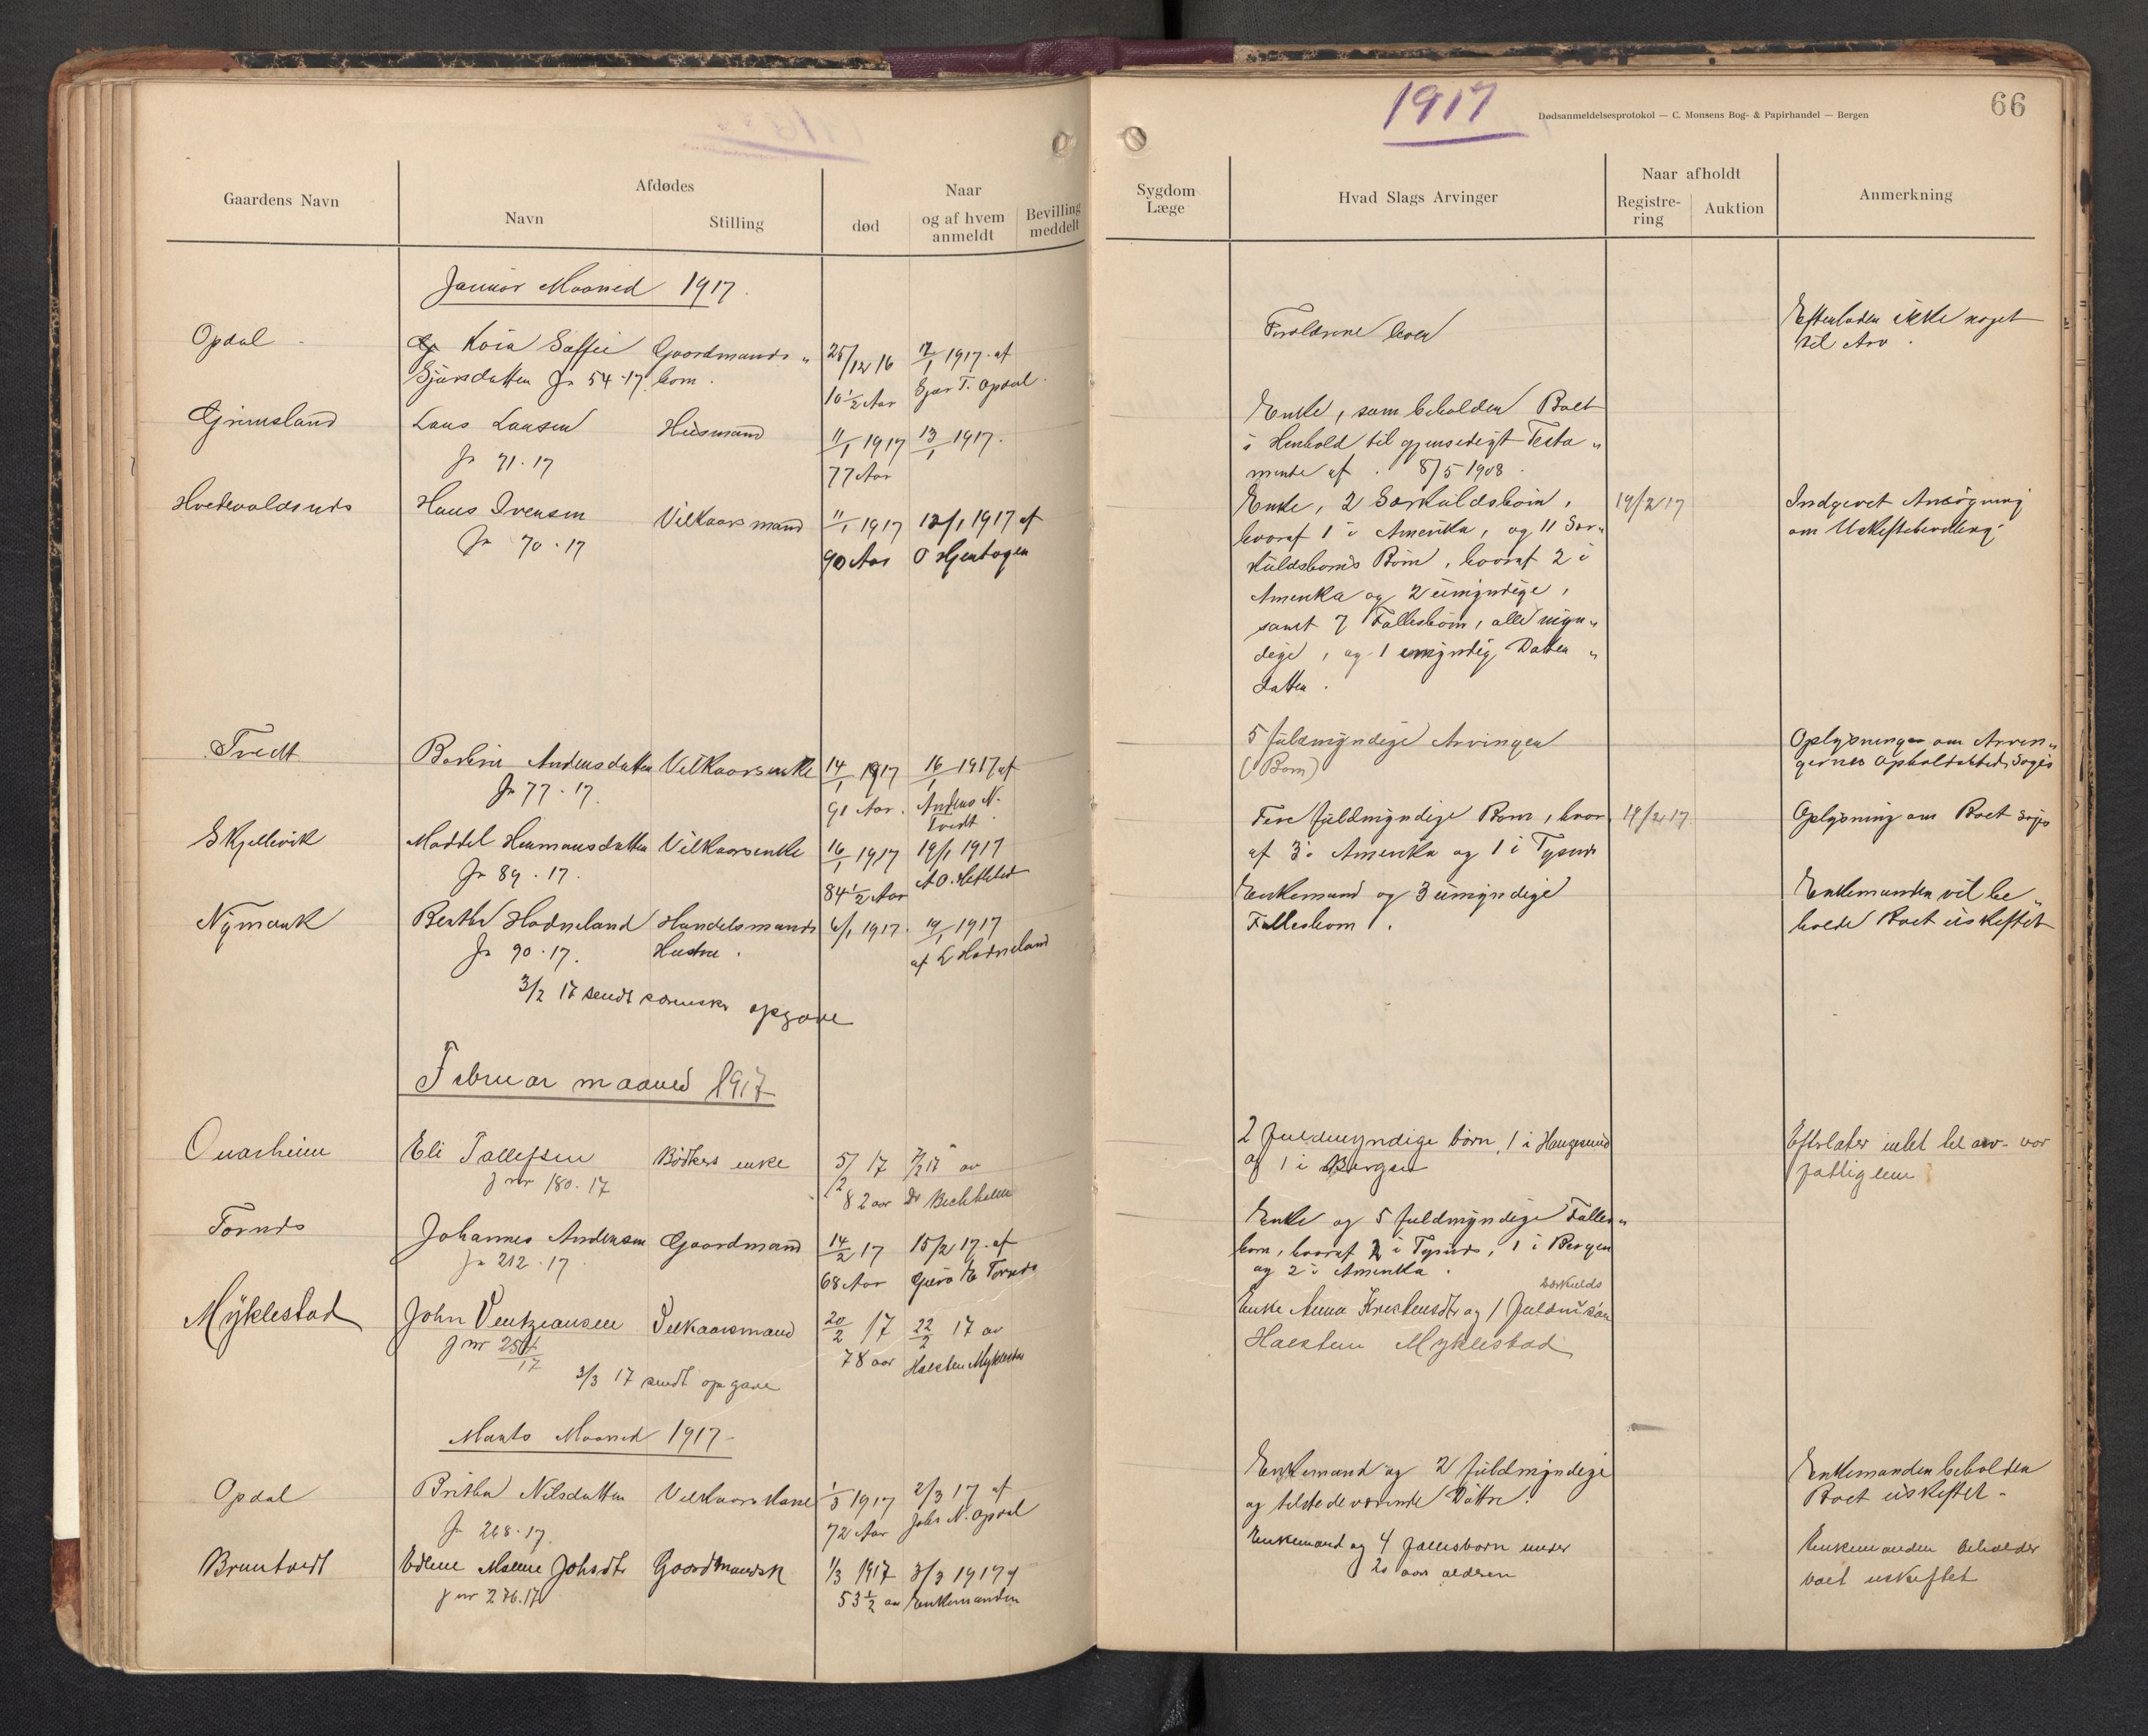 1917
Dødsanmeldelsesprotokol — C. Monsens Bog- & Papirhandel — Bergen
66
Gaardens Navn
Afdødes
Navn
Stilling
Naar
død
og af hvem
anmeldt
Bevilling
meddelt
Sygdom
Læge
Hvad Slags Arvinger
Naar afholdt
Registre-
ring
Auktion
Anmerkning
Januar Maaned 1917.
Opdal
Kaia Soffie
Gaardmands „
25/12 16
1917 af
Sjursdatter Jr 54·17
barn.
10 1/2 Aar
Sjur T. Opdal
Forældrene lever
Efterlader ikke noget
til Arv.
Grimsland
Lars Larsen
Husmand
11/1 1917
13/1 1917.
Jr 71·17
77 Aar
Enke, som beholder Boet
i Henhold til gjensidigt Testa „
mente af 8/5 1908
Hans Iversen
Vilkaarsmand
11/1 1917
12/1 1917 af
Jr 70·17
90 Aar
Enke, 2 Særkuldsbørn,
hvoraf 1 i Amerika, og 11 Sær„
kuldsbørns Børn, hvoraf 2 i
Amerika og 2 umyndige,
samt 7 Fællesbørn, alle myn„
dige, og 1 umyndig Datter „
datter.
19/2 17
Indgivet Ansøgning
om Uskiftebevilling.
Tvedt
Andersdatter
Vilkaarsenke
14/1 1917
16/1 1917 af
Jr 77·17.
91 Aar.
Anders N.
Tvedt
5 fuldmyndige Arvinger
(Børn)
Oplysninger om Arvin„
gernes Opholdssted søges
Skjellevik
Hermansdatter
Vilkaarsenke
16/1 1917
19/1 1917
Jr 89·17.
84 1/2 Aar
Fire fuldmyndige Børn, hvor
af 3 i Amerika og 1 i Tysnes
19/2 17
Oplysning om Boet søges
Nymark
Berthe Hodneland
Handelsmands
6/1 1917.
19/1 1917
Jr 90·17.
Hustru.
af L Hodneland
3/2 17 sendt opgave
Enkemand og 3 umyndige
Fællesbørn.
Enkemanden vil be„
holde Boet uskiftet
Februar maaned 1917
Onarheim
Eli Tollefsen
Bødkers enke
5/2 17
7/2 17 av
J nr 180·17
82 aar
Dr
2 fuldmyndige børn, 1 i Haugesund
og 1 i Bergen
Efterlater intet til arv - var
fattiglem
Johannes Andersen
Gaardmand
14/2 17
15/2 17. af
Jr 212·17
68 Aar
Enke og 5 fuldmyndige Fælles„
børn, hvoraf 2 i Tysnes, 1 i Bergen
og 2 i Amerika.
Myklestad
John
Vilkaarsmand
20/2 17
22/2 17 av
J nr 254/17
78 aar
Halsten Myklestad
3/3 17 sendt opgave
særkulds
Enke Anna og 1 fuldm. søn
Halsten Myklestad
Marts Maaned 1917
Opdal
Britha Nilsdatter
Vilkaars Kone
1/3 1917
2/3 17 af
Jr 268·17.
72 Aar
Johs N. Opdal
Enkemand og 2 fuldmyndige
og tilstedeværende Døttre.
Enkemanden beholder
Boet uskiftet.
Bruntvedt
Johsdtr
Gaardmandsk
1/3 1917
3/3 1917 af
J nr 276.17
53 1/2 aar
Enkemanden
Enkemand og 4 fællesbørn under
20 aars alderen
Enkemanden beholder
boet uskiftet